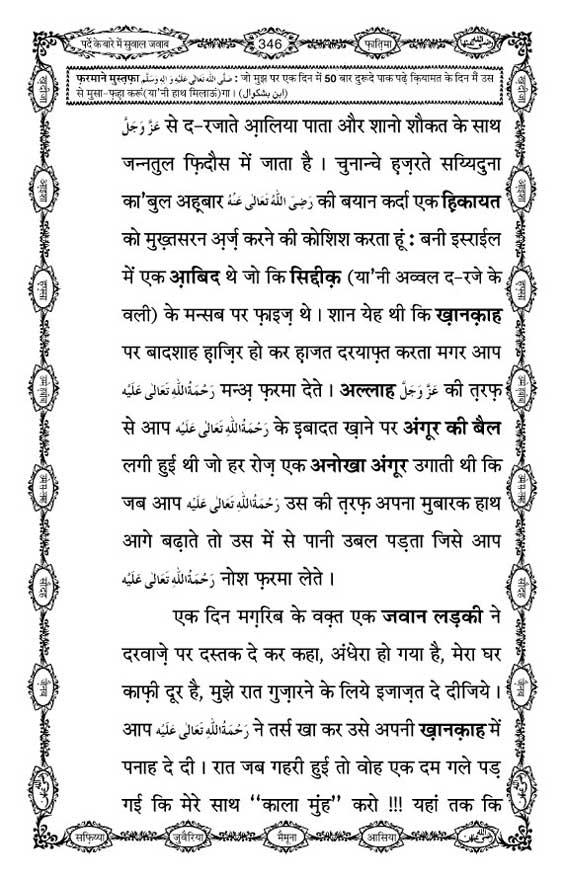 पर्दे के बारे में सुवाल जवाब
346
फ़ातिमा
फ़रमाने मुस्तफ़ा صَلَّى اللهُ تَعَالٰى عَلَيْهِ وَاٰلِهٖ وَسَلَّم : जो मुझ पर एक दिन में 50 बार दुरूदे पाक पढ़े क़ियामत के दिन मैं उस
से मुसा-फ़हा करूं(या'नी हाथ मिलाऊं)गा। (ابن بشکوال)
عَزَّوَجَلَّ से द-रजाते आ़लिया पाता और शानो शौकत के साथ
जन्नतुल फ़िर्दौस में जाता है । चुनान्चे हज़रते सय्यिदुना
का'बुल अह़्बार رَضِىَ اللهُ تَعَالٰى عَنْهُ की बयान कर्दा एक ह़िकायत
को मुख़्तसरन अ़र्ज़ करने की कोशिश करता हूं : बनी इस्राईल
में एक आ़बिद थे जो कि सिद्दीक़ (या'नी अव्वल द-रजे के
वली) के मन्सब पर फ़ाइज़ थे । शान येह थी कि ख़ानक़ाह
पर बादशाह ह़ाज़िर हो कर ह़ाजत दरयाफ़्त करता मगर आप
رَحْمَةُاللهِ تَعَالٰى عَلَيْه मन्अ़ फ़रमा देते । अल्लाह عَزَّوَجَلَّ की त़रफ़
से आप رَحْمَةُاللهِ تَعَالٰى عَلَيْه के इबादत ख़ाने पर अंगूर की बैल
लगी हुई थी जो हर रोज़ एक अनोखा अंगूर उगाती थी कि
जब आप رَحْمَةُاللهِ تَعَالٰى عَلَيْه उस की त़रफ़ अपना मुबारक हाथ
आगे बढ़ाते तो उस में से पानी उबल पड़ता जिसे आप
رَحْمَةُاللهِ تَعَالٰى عَلَيْه नोश फ़रमा लेते ।
एक दिन मग़रिब के वक़्त एक जवान लड़की ने
दरवाज़े पर दस्तक दे कर कहा, अंधेरा हो गया है, मेरा घर
काफ़ी दूर है, मुझे रात गुज़ारने के लिये इजाज़त दे दीजिये ।
आप رَحْمَةُاللهِ تَعَالٰى عَلَيْه ने तर्स खा कर उसे अपनी ख़ानक़ाह में
पनाह दे दी । रात जब गहरी हुई तो वोह एक दम गले पड़
गई कि मेरे साथ ‘‘काला मुंह’’ करो !!! यहां तक कि
सफ़िय्या
जुवैरिया
मैमूना
आसिया